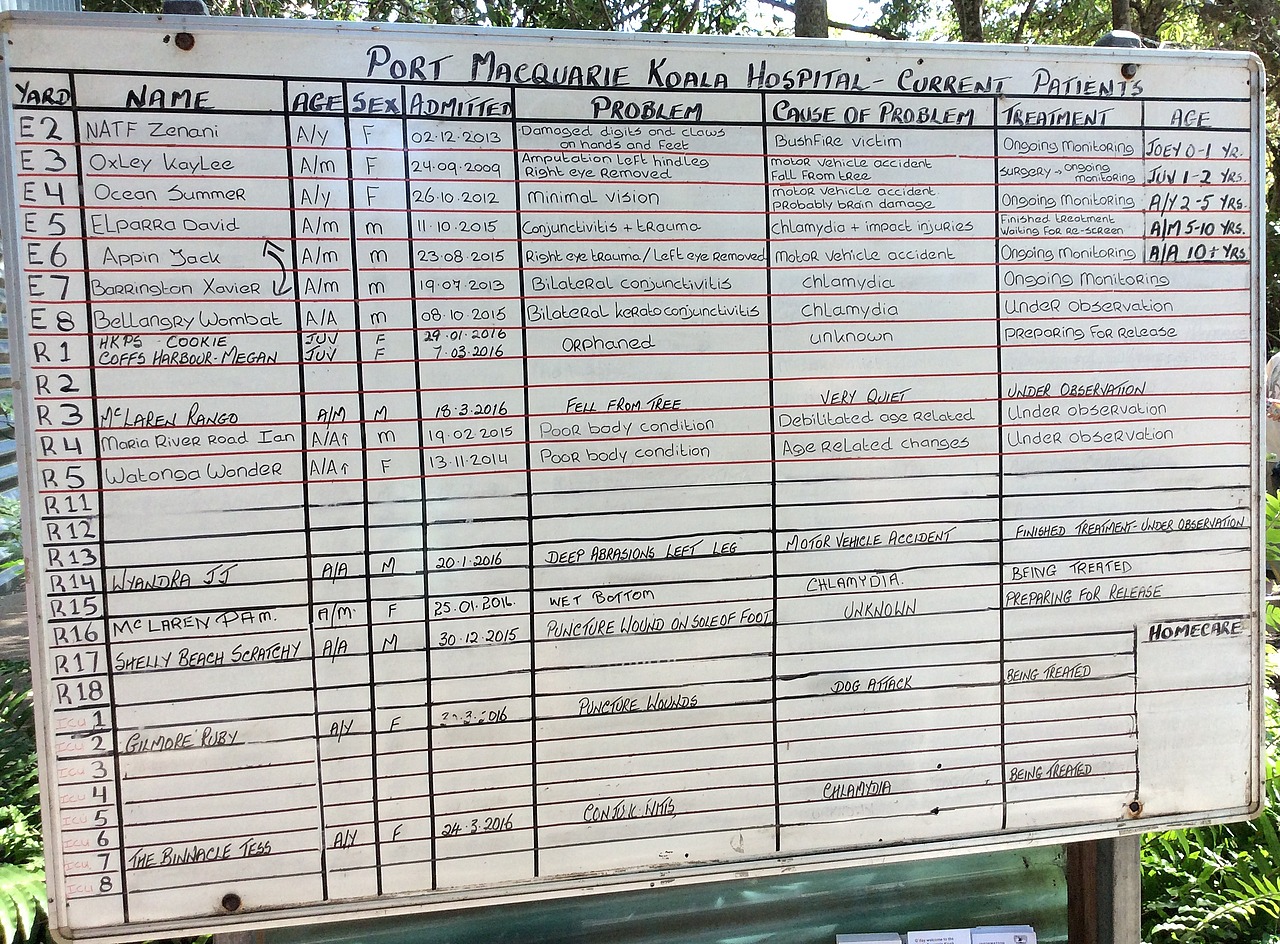 PORT MACQUARIE KOALA HOSPITAL - CURRENT PATIENTS
YARD NAME AGE SEX ADMITTED PROBLEM CAUSE OF PROBLEM TREATMENT AGE
E2 NATF Zenani A/y F 02·12·2013 Damaged digits and claws on hands and feet BushFire victim Ongoing Monitoring JOEY 0-1 YR.
E3 Oxley KayLee A/m F 24·09·2009 Amputation Left hindleg Right eye Removed motor vehicle accident Fall From tree surgery → ongoing monitoring JUV 1-2 YRS.
E4 Ocean Summer A/y F 26·10·2012 minimal vision motor vehicle accident probably brain damage Ongoing Monitoring A/Y 2-5 YRS.
E5 ELparra David A/m m 11·10·2015 Conjunctivitis + trauma chlamydia + impact injuries Finished treatment waiting For re-screen A/M 5-10 YRS.
E6 Appin Jack A/m m 23·08·2015 Right eye trauma / Left eye removed Motor vehicle accident Ongoing Monitoring A/A 10+ YRS
E7 Barrington Xavier A/m m 19·07·2013 Bilateral conjunctivitis chlamydia Ongoing Monitoring
E8 Bellangry Wombat A/A m 08·10·2015 Bilateral keratoconjunctivitis chlamydia Under observation
R1 HKPS - COOKIE JUV F 29·01·2016 ORphaned unknown preparing For release
COFFS HARBOUR - MEGAN JUV F 7·03·2016
R2
R3 McLAREN RANGO A/M M 18·3·2016 FELL FROM TREE VERY QUIET UNDER OBSERVATION
R4 Maria River Road Ian A/A↑ m 19·02 2015 Poor body condition Debilitated age related Under observation
R5 Watonga Wonder A/A↑ F 13·11·2014 Poor body condition Age Related changes Under observation
R11
R12
R13
R14 WYANDRA JJ A/A M 20·1·2016 DEEP ABRASIONS LEFT LEG MOTOR VEHICLE ACCIDENT FINISHED TREATMENT - UNDER OBSERVATION
R15
R16 McLAREN PAM. A/M. F 25.01.2016. WET BOTTOM CHLAMYDIA. BEING TREATED
R17 SHELLY BEACH SCRATCHY A/A M 30·12·2015 PUNCTURE WOUND ON SOLE OF FOOT UNKNOWN PREPARING FOR RELEASE
HOMECARE
R18
ICU 1
ICU 2 GILMORE RUBY A/Y F 3·2016 PUNCTURE WOUNDS DOG ATTACK BEING TREATED
ICU 3
ICU 4
ICU 5
ICU 6
ICU 7 THE BINNACLE TESS A/Y F 24·3·2016 CHLAMYDIA BEING TREATED
ICU 8